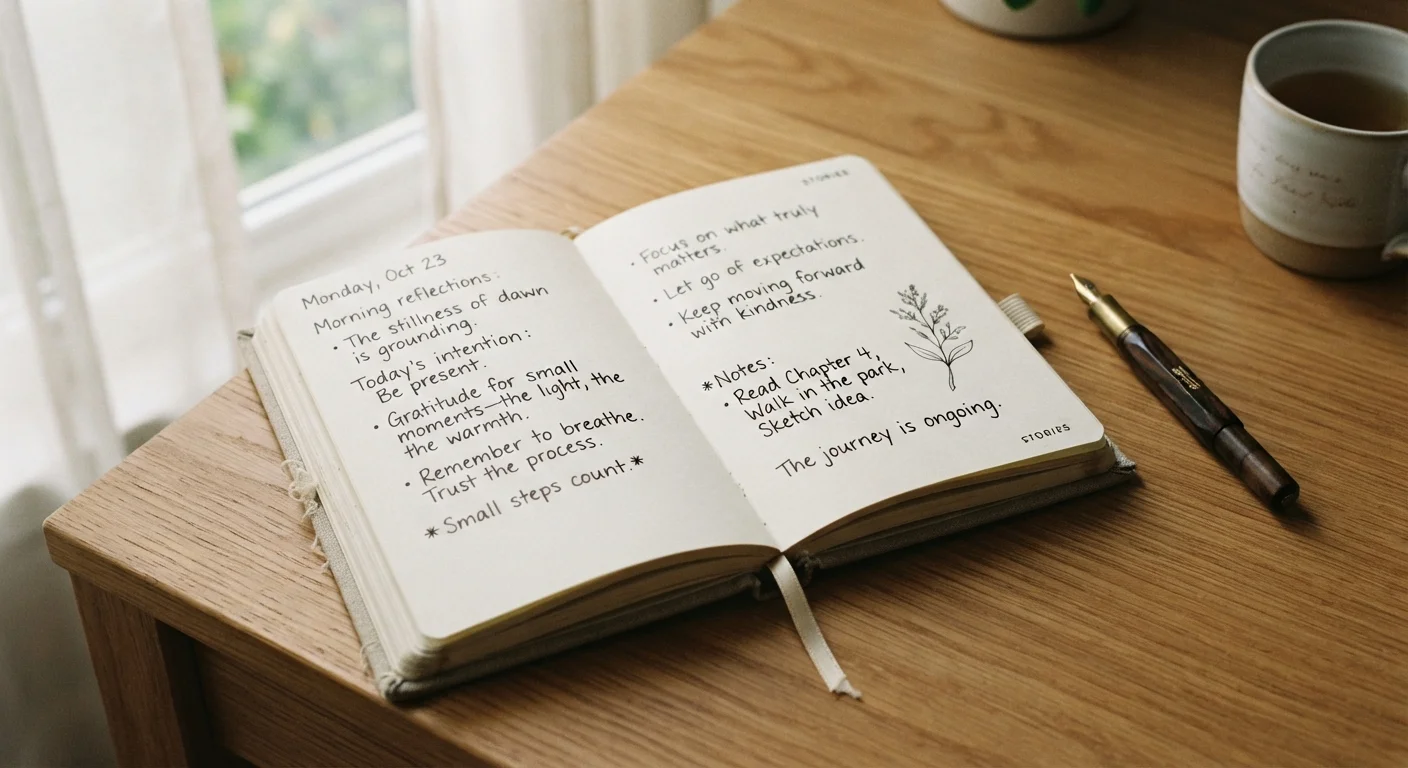 Monday, Oct 23
Morning reflections:
• The stillness of dawn
is grounding.
Today's intention:
Be present.
• Gratitude for small
moments—the light, the
the warmth.
• Remember to breathe.
Trust the process.
*Small steps count.*
STORIES
• Focus on what truly
matters.
• Let go of expectations.
• Keep moving forward
with kindness.
*Notes:
• Read Chapter 4,
Walk in the park,
Sketch idea.
The journey is ongoing.
STORIES